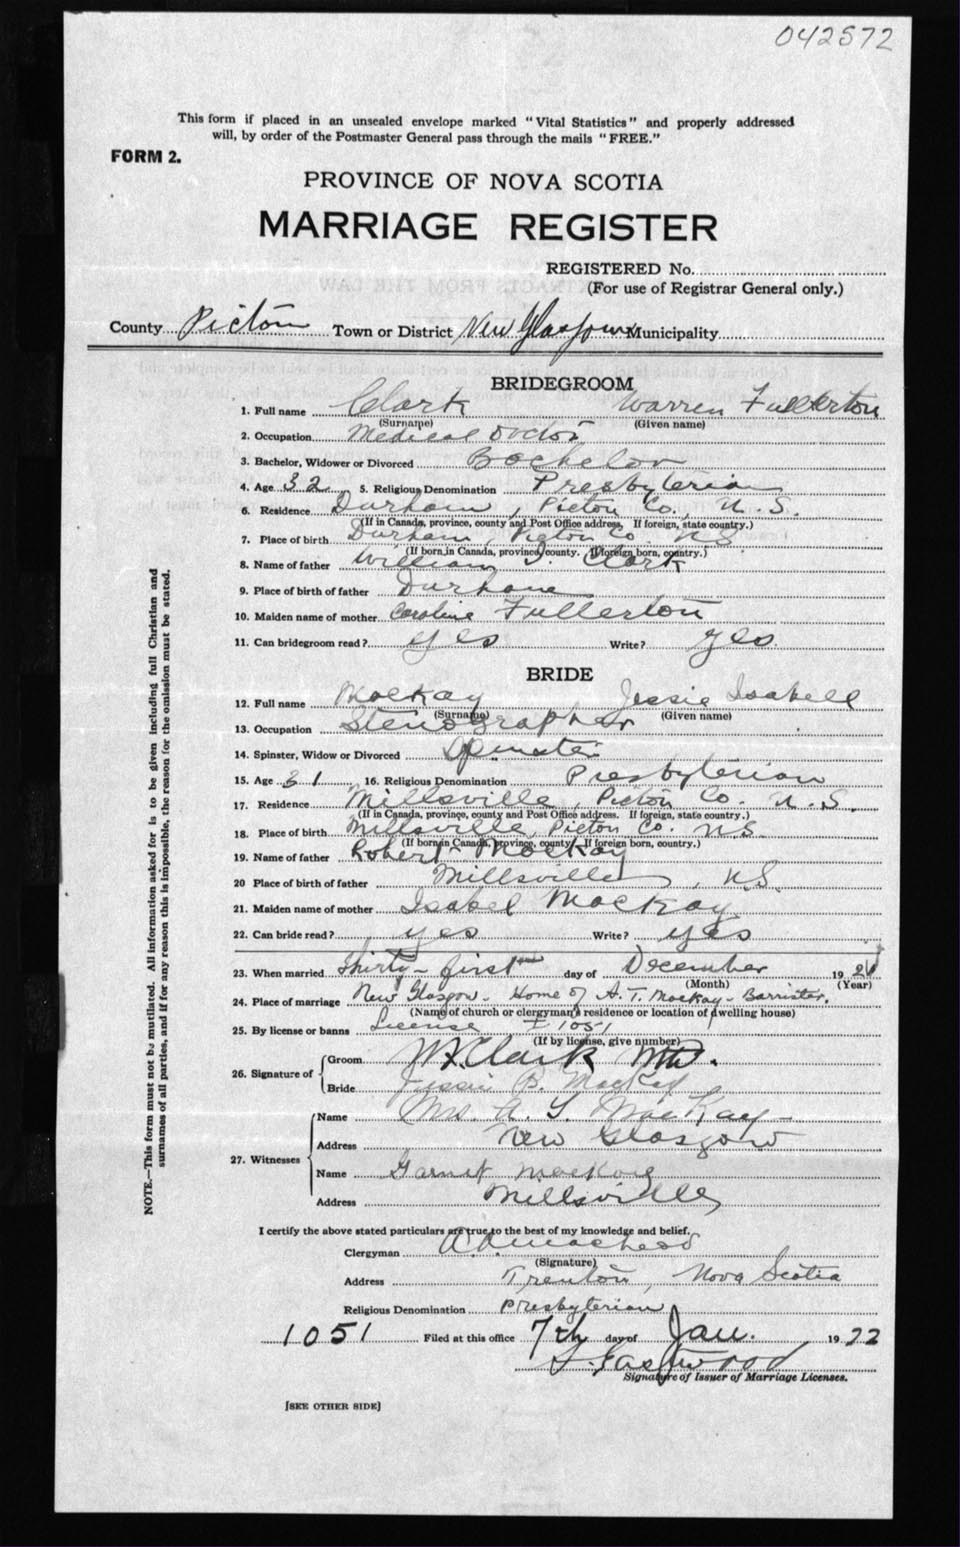 042572
This form if placed in an unsealed envelope marked "Vital Statistics" and properly addressed
will, by order of the Postmaster General pass through the mails "FREE."
FORM 2.
PROVINCE OF NOVA SCOTIA
MARRIAGE REGISTER
REGISTERED No.
(For use of Registrar General only.)
County Pictou Town or District New Glasgow Municipality
BRIDEGROOM
1. Full name Clark Warren Fullerton
(Surname) (Given name)
2. Occupation Medical Doctor
3. Bachelor, Widower or Divorced Bachelor
4. Age 32 5. Religious Denomination Presbyterian
6. Residence Durham, Pictou Co., N.S.
(If in Canada, province, county and Post Office address. If foreign, state country.)
7. Place of birth Durham, Pictou Co. N.S.
(If born in Canada, province, county. If foreign born, country.)
8. Name of father William Clark
9. Place of birth of father Durham
10. Maiden name of mother Caroline Fullerton
11. Can bridegroom read? yes Write? yes.
BRIDE
12. Full name MacKay Jessie Isabell
(Surname) (Given name)
13. Occupation Stenographer
14. Spinster, Widow or Divorced Spinster
15. Age 31 16. Religious Denomination Presbyterian
17. Residence Millsville, Pictou Co. N.S.
(If in Canada, province, county and Post Office address. If foreign, state country.)
18. Place of birth Millsville, Pictou Co. N.S.
(If born in Canada, province, county. If foreign born, country.)
19. Name of father Robert MacKay
20 Place of birth of father Millsville, N.S.
21. Maiden name of mother Isabel MacKay
22. Can bride read? yes Write? yes
23. When married Thirty-first day of December 1921
(Month) (Year)
24. Place of marriage New Glasgow - Home of A. T. MacKay - Barrister.
(Name of church or clergyman's residence or location of dwelling house)
25. By license or banns License 1051
(If by license, give number)
26. Signature of Groom W.F. Clark M.D.
Bride Jessie B. MacKay
27. Witnesses Name Mrs. A. T. MacKay
Address New Glasgow
Name Garnet MacKay
Address Millsville
NOTE.—This form must not be mutilated. All information asked for is to be given including full Christian and
surnames of all parties, and if for any reason this is impossible, the reason for the omission must be stated.
I certify the above stated particulars are true to the best of my knowledge and belief.
Clergyman
(Signature)
Address Trenton, Nova Scotia
Religious Denomination Presbyterian
1051 Filed at this office 7th day of Jan. 1922
Eastwood
Signature of Issuer of Marriage Licenses.
[SEE OTHER SIDE]